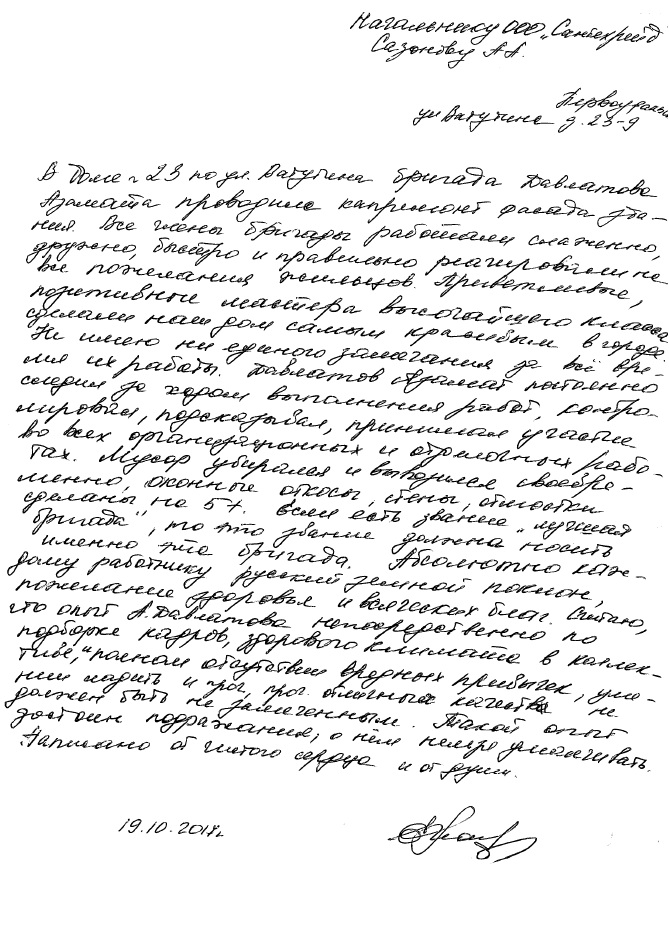 Начальнику ООО „Сантехрейд
Сазонову А.А.
Первоуральск
ул Ватутина д. 23-9
В доме 23 по ул. Ватутина бригада Давлатова
Азамата проводила капремонт фасада зда-
ния. Все члены бригады работали слаженно,
дружно, быстро и правильно реагировали на
все пожелания жильцов. Приветливые,
позитивные мастера высочайшего класса
сделали наш дом самым красивым в городе.
Не имею ни единого замечания за всё вре-
мя их работы. Давлатов Азамат постоянно
следил за ходом выполнения работ, контро-
лировал, подсказывал, принимал участие
во всех организационных и отделочных рабо-
тах. Мусор убирался и вывозился своевре-
менно, оконные откосы, стены, отмостки
сделаны на 5+. Если есть звание „лучшая
бригада", то это звание должна носить
именно эта бригада. Абсолютно каж-
дому работнику русский земной поклон,
пожелание здоровья и всяческих благ. Считаю,
что опыт А.Давлатова непосредственно по
подборке кадров, здорового климата в коллек-
тиве, полном отсутствии вредных привычек, уме-
нии ладить и проч, проч. отличных качества не
должен быть не замеченным. Такой опыт
достоин подражания, о нём нельзя умалчивать.
Написано от чистого сердца и от души.
19.10.2017г